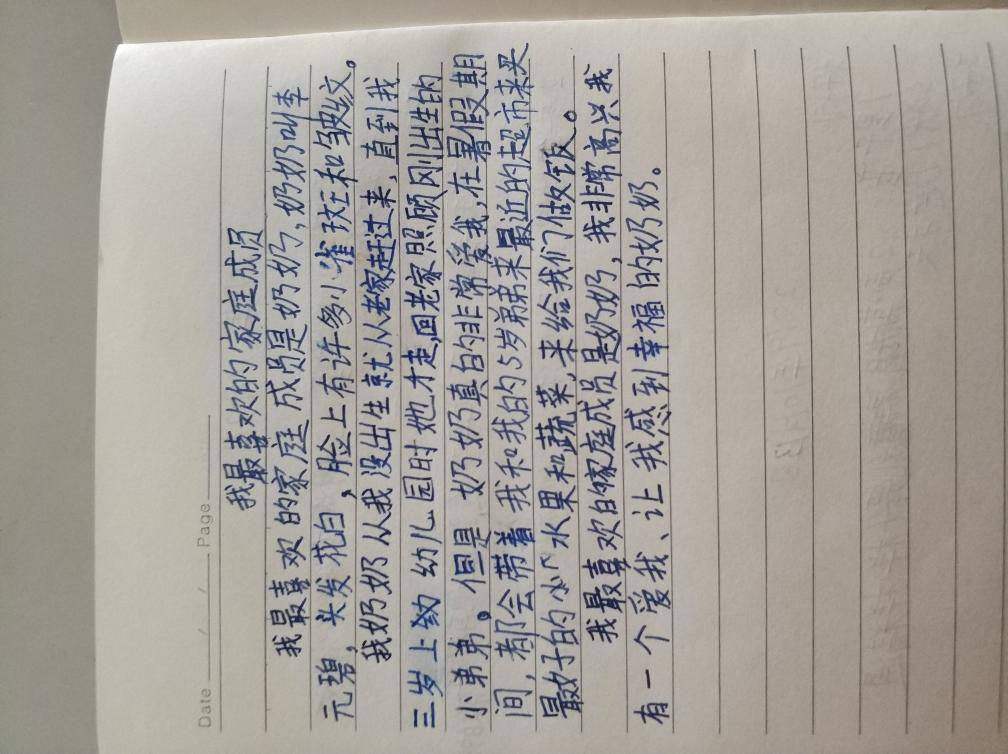 Date / / Page
我最喜欢的家庭成员
我最喜欢的家庭成员是奶奶,奶奶叫李
元碧,头发花白,脸上有许多小雀斑和皱纹。
我奶奶从我没出生就从老家赶过来,直到我
三岁上幼儿园时她才走,回老家照顾刚出生的
小弟弟。但是奶奶真的非常爱我,在暑假期
间,都会带着我和我的5岁弟弟来最近的超市来买
最好的水果和蔬菜,来给我们做饭。
我最喜欢的家庭成员是奶奶,我非常高兴我
有一个爱我、让我感到幸福的奶奶。